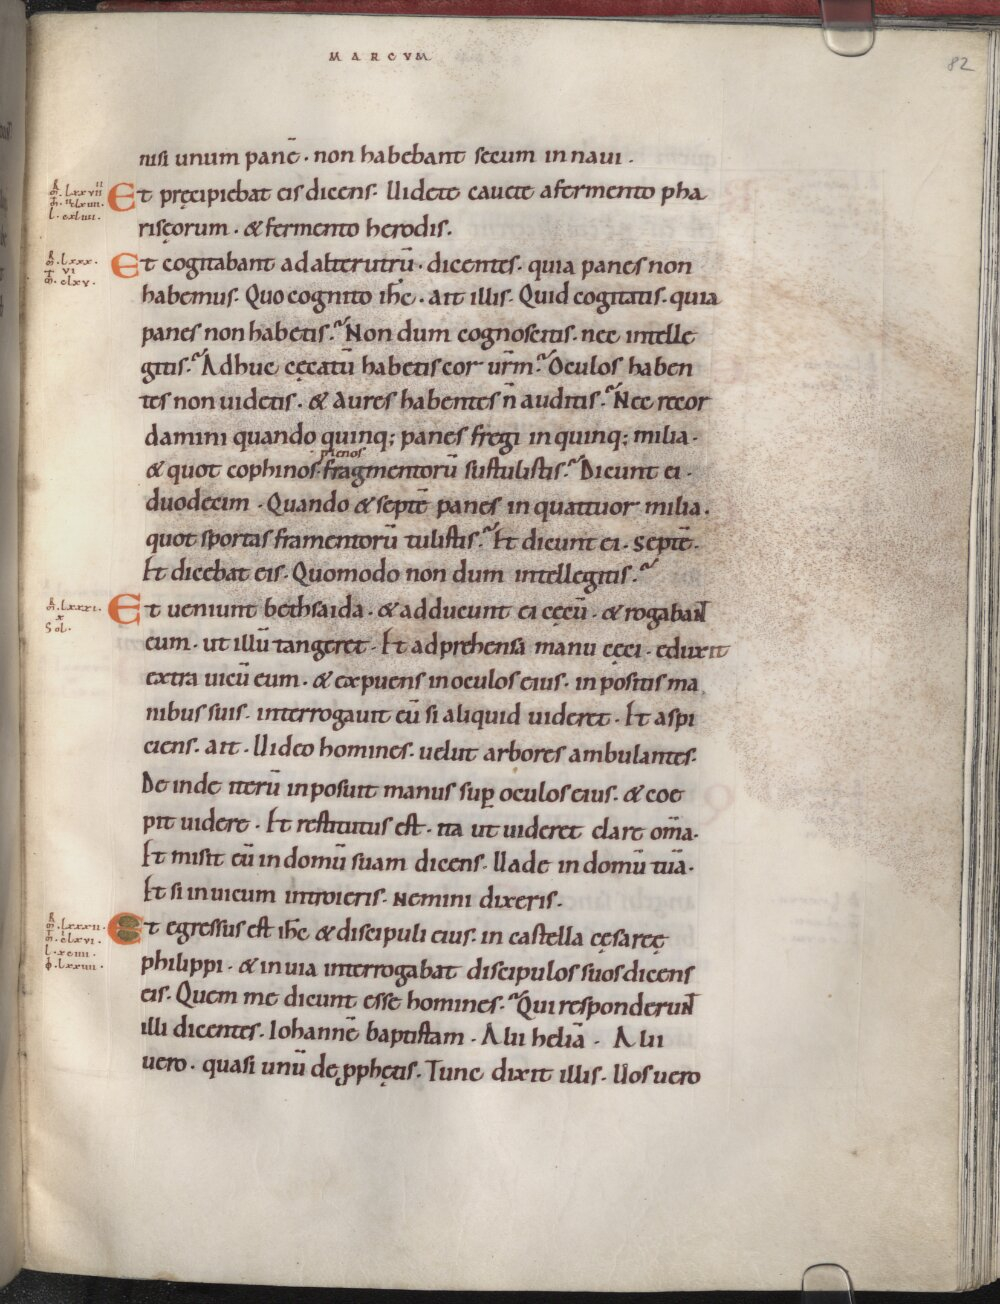 MARCVM
82
nisi unum panē · non habebant secum in naui ·
Et pręcipiebat eis dicens · Uidete cauete afermento pha
risęorum · & fermento herodis.
Et cogitabant ad alterutrū · dicentes · quia panes non
habemus · Quo cognito ihc̄ · ait illis · Quid cogitatis · quia
panes non habetis? Non dum cognoscitis · nec intelle
gitis? Adhuc cęcatū habetis cor ur̄m? Oculos haben
tes non uidetis · & aures habentes n̄ auditis? Nec recor
damini quando quinq; panes fregi in quinq; milia ·
plenos
& quot cophinos · fragmentorū sustulistis? Dicunt ei ·
duodecim · Quando & septē panes in quattuor milia ·
quot sportas framentorū tulistis? Et dicunt ei · septē ·
Et dicebat eis · Quomodo non dum intellegitis?
Et ueniunt bethsaida · & adducunt ei cęcū · & rogabant
eum · ut illū tangeret · Et adprehensa manu cęci · eduxit
extra uicū eum · & expuens in oculos eius · inpositis ma
nibus suis · interrogauit eū si aliquid uideret · Et aspi
ciens · ait · Uideo homines · uelut arbores ambulantes ·
De inde iterū inposuit manus sup̱ oculos eius · & coe
pit uidere · Et restitutus est · ita ut uideret clare om̄a ·
Et misit eū in domū suam dicens · Uade in domū tuā ·
Et si in uicum introieris · nemini dixeris ·
Et egressus est ihc̄ & discipuli eius · in castella cęsaręę
philippi · & in uia interrogabat discipulos suos dicens
eis · Quem me dicunt esse homines? Qui responderunt
illi dicentes · Iohannē baptistam · Alii heliā · Alii
uero · quasi unū de ꝓphętis · Tunc dixit illis · Uos uero